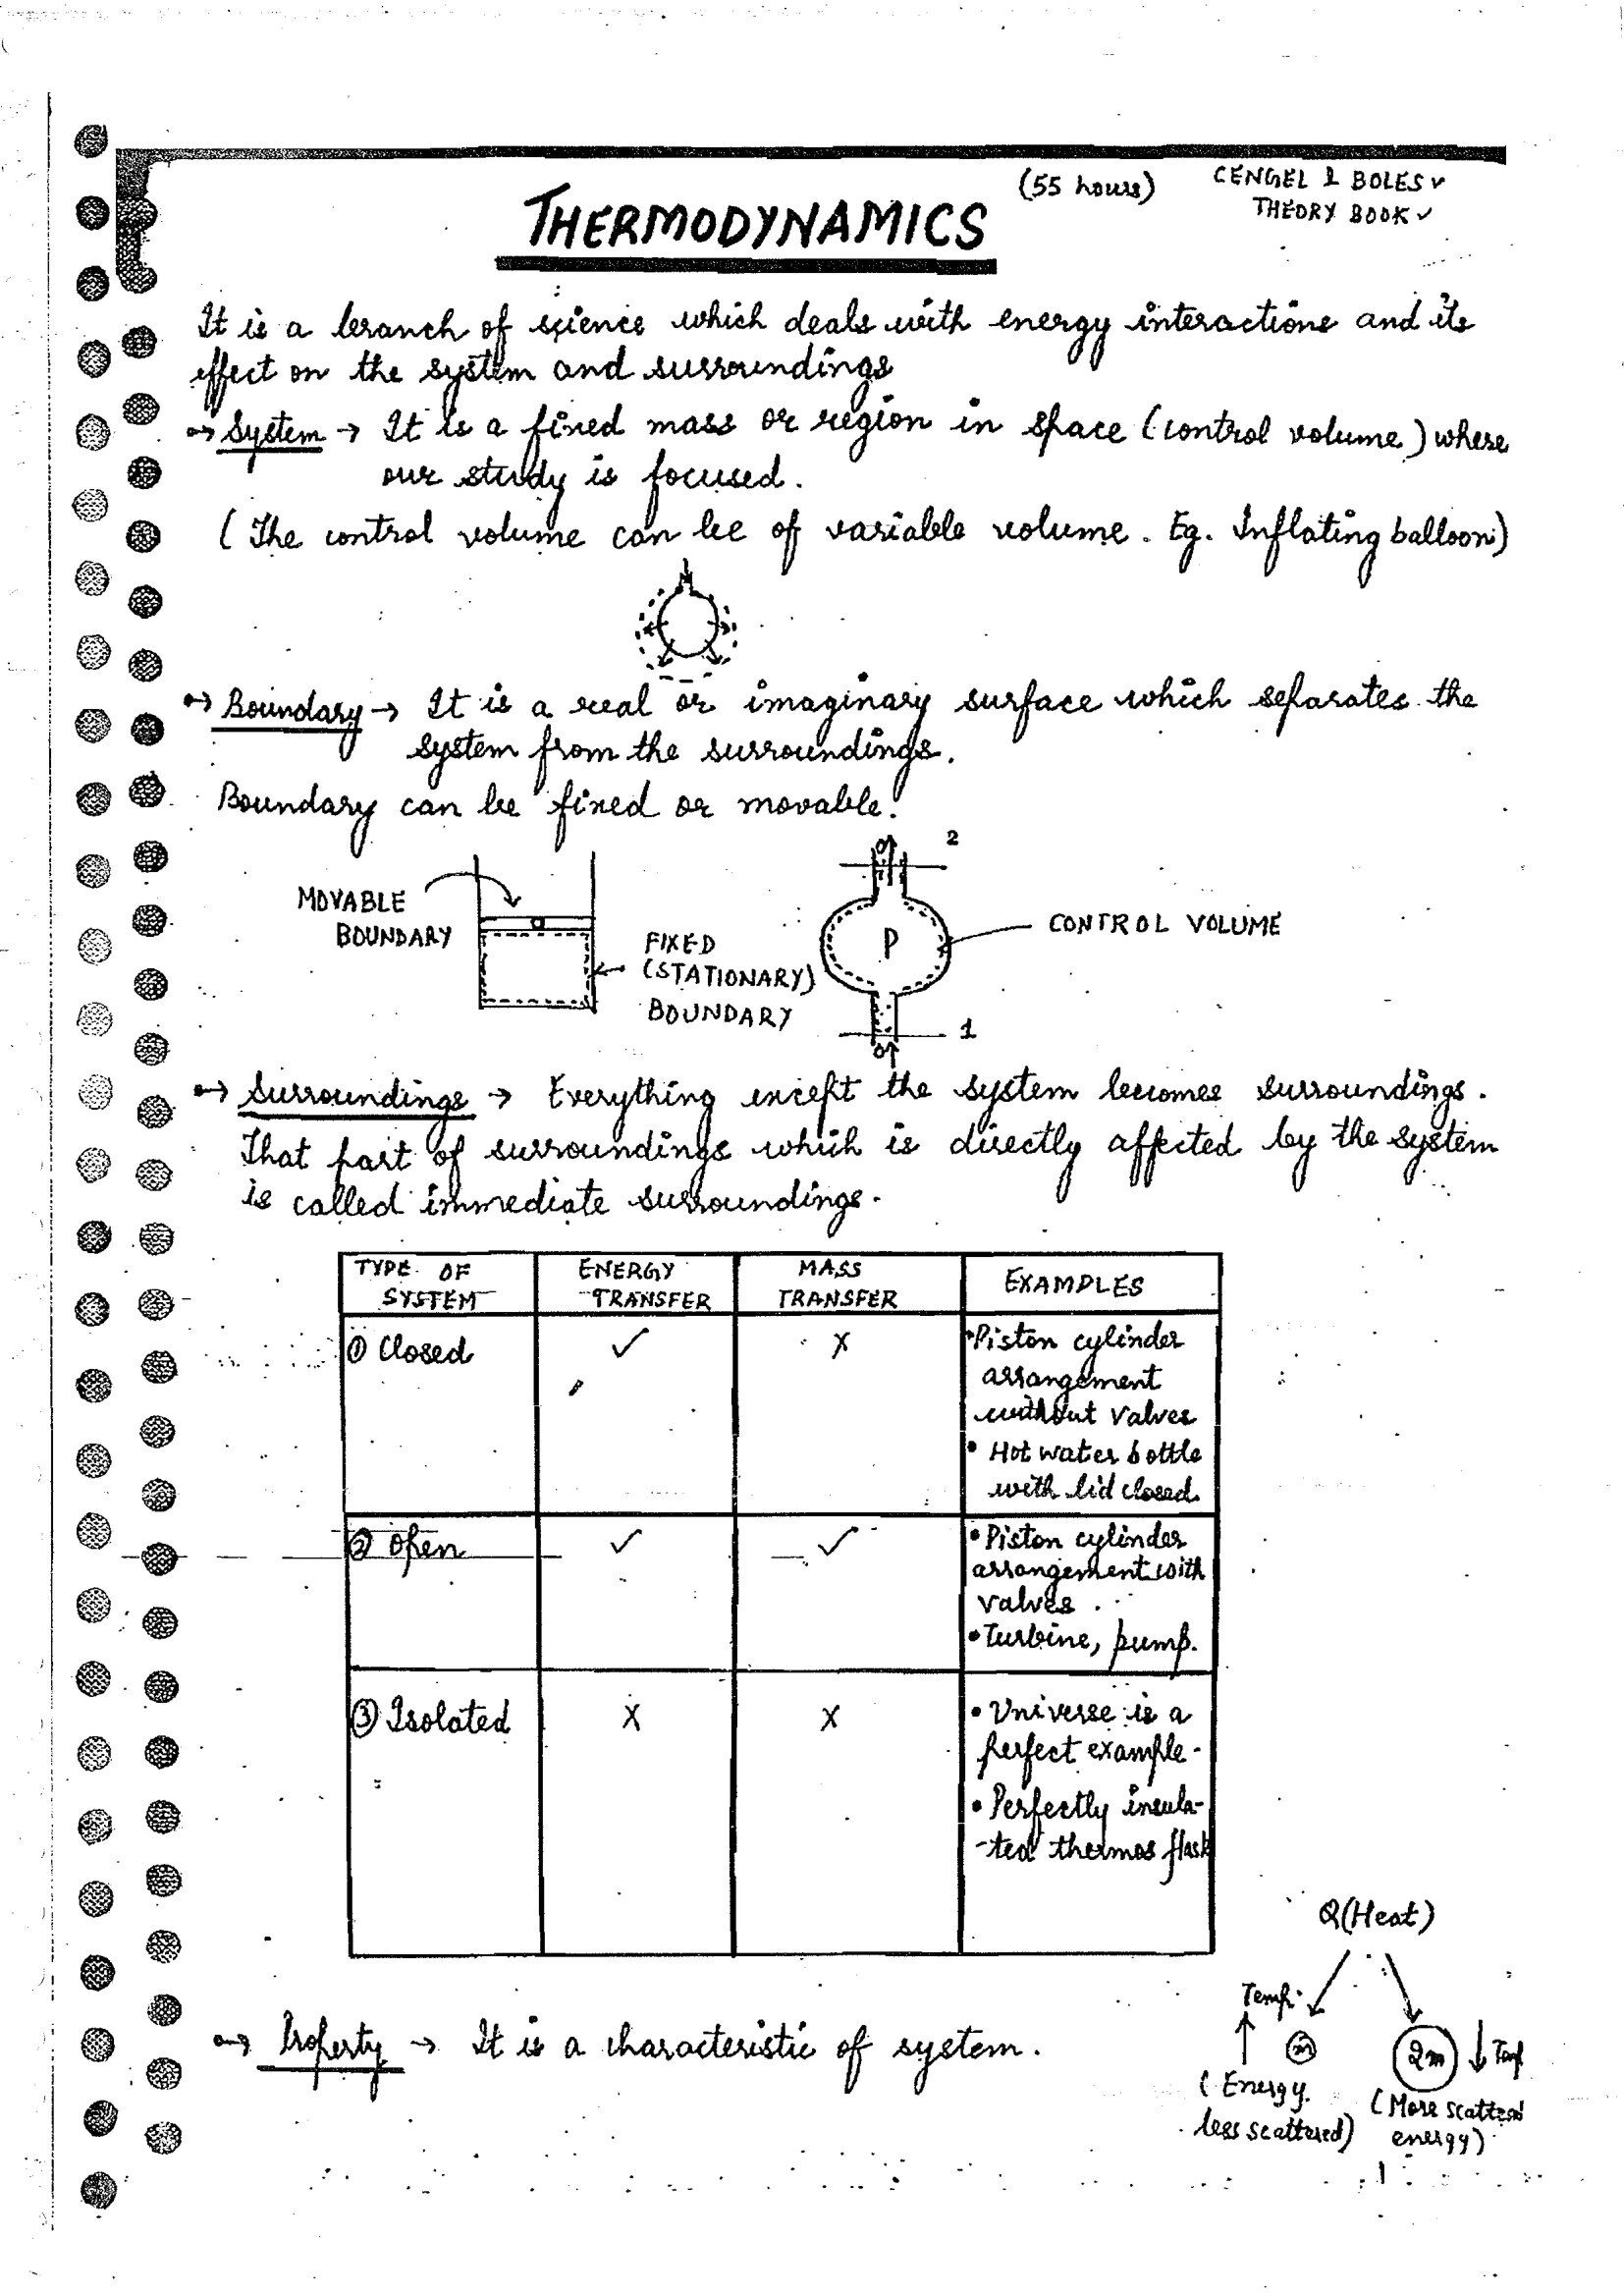 (55 hours)
CENGEL & BOLES ✓
THEORY BOOK ✓
THERMODYNAMICS
It is a branch of science which deals with energy interactions and its
effect on the system and surroundings
→ System → It is a fixed mass or region in space (control volume) where
our study is focused.
(The control volume can be of variable volume. Eg. Inflating balloon)
→ Boundary → It is a real or imaginary surface which separates the
system from the surroundings.
Boundary can be fixed or movable.
MOVABLE
BOUNDARY
FIXED
(STATIONARY)
BOUNDARY
2
P
CONTROL VOLUME
1
→ Surroundings → Everything except the system becomes surroundings.
That part of surroundings which is directly affected by the system
is called immediate surroundings.
TYPE OF
SYSTEM
ENERGY
TRANSFER
MASS
TRANSFER
EXAMPLES
① Closed ✓ X
• Piston cylinder
arrangement
without valves
• Hot water bottle
with lid closed.
② Open ✓ ✓
• Piston cylinder
arrangement with
valves.
• Turbine, pump.
③ Isolated X X
• Universe is a
perfect example.
• Perfectly insula-
-ted thermos flask
Q(Heat)
Temp. ↑
m
(Energy
less scattered)
2m
↓ Temp
(More scattered
energy)
→ Property → It is a characteristic of system.